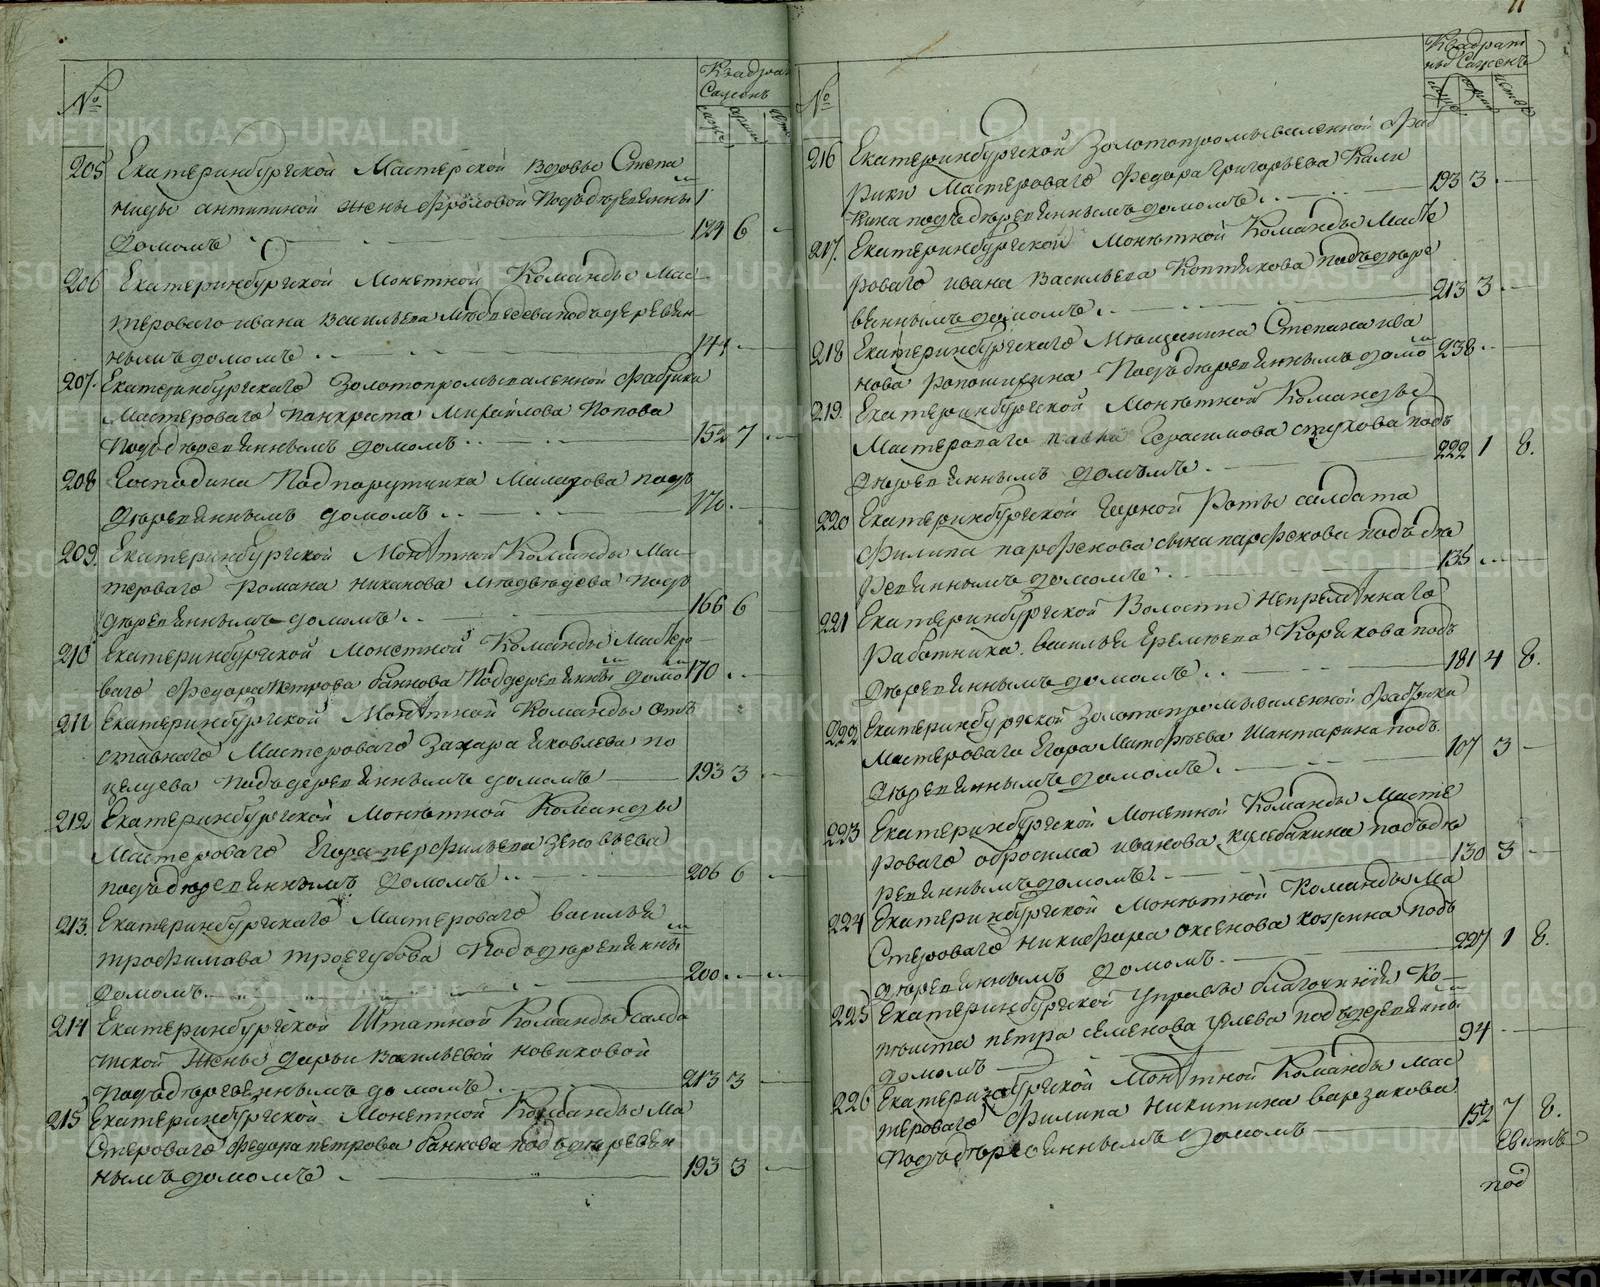 №
Квадрат
Сажень
саже арши
205 Екатеринбургской Мастерской вдовы Степа
ниды антипиной жены Фроловой Подъ деревянны
домомъ 124 6
206 Екатеринбургской Монетной Команды Мас
тероваго ивана Васильева подъ деревян
нымъ домомъ
207. Екатеринбургскаго Золотопромываленной фабрики
Мастероваго панкрата Михайлова Попова
Подъ деревяннымъ домомъ 152 7
208 Господина Подпорутчика подъ
деревяннымъ домомъ 170.
209. Екатеринбургской Монетной Команды Мас
тероваго Романа подъ
деревяннымъ домомъ 166 6
210 Екатеринбургской Монетной Команды Масте
ваго Федора петрова банкова Под деревянны домо 170
211 Екатеринбургской Монетной Команды отъ
ставнаго Мастероваго Захара яковлева по
целуева Подъ деревяннымъ домомъ 193 3
212 Екатеринбургской Монетной Команды
Мастероваго Егора перфильева
подъ деревяннымъ домомъ 206 6
213. Екатеринбургскаго Мастероваго василья
трофимова троегубова Подъ деревянны
домомъ 200
214 Екатеринбургской Штатной Команды салда
тской жены дарьи васильевой новиковой
подъ деревяннымъ домомъ 213 3
215 Екатеринбургской Монетной Команды Ма
стероваго Федора петрова банкова подъ деревян
нымъ домомъ 193 3
11
№
Квадрат
ныя Сажень
216 Екатеринбургской Золотопромываленной Фаб
рики Мастероваго Федора Григорьева Кали
кина подъ деревяннымъ домомъ 193 3
217. Екатеринбургской Монетной Команды Масте
роваго ивана Васильева подъ дере
вяннымъ домомъ 213 3
218 Екатеринбургскаго Мещанина Степана ива
нова Подъ деревяннымъ домо 238
219. Екатеринбургской Монетной Команды
Мастероваго павла Герасимова стукова подъ
деревяннымъ домомъ 222 1 8.
220 Екатеринбургской Горной Роты салдата
Филипа парфенова сына парфенова подъ де
ревяннымъ домомъ 135
221 Екатеринбургской Волости Непременнаго
Работника василья Еремеева Корякова подъ
деревяннымъ домомъ 181 4 8.
222 Екатеринбургской Золотопромываленной Фабрики
Мастероваго Егора Матфеева Шантарина подъ
деревяннымъ домомъ 107 3
223 Екатеринбургской Монетной Команды Масте
роваго обросима иванова кулебакина подъ де
ревяннымъ домомъ 130 3
224 Екатеринбургской Монетной Команды Ма
стероваго Никифора аксенова подъ
деревяннымъ домомъ 227 1 8.
225 Екатеринбургской управы благочиния Ко
пеиста петра семенова подъ деревянны
домомъ 94
226 Екатеринбургской Монетной Команды Мас
тероваго Филипа Никитина варзакова
Подъ деревяннымъ домомъ 152 7 8.
под
METRIKI.GASO-URAL.RU